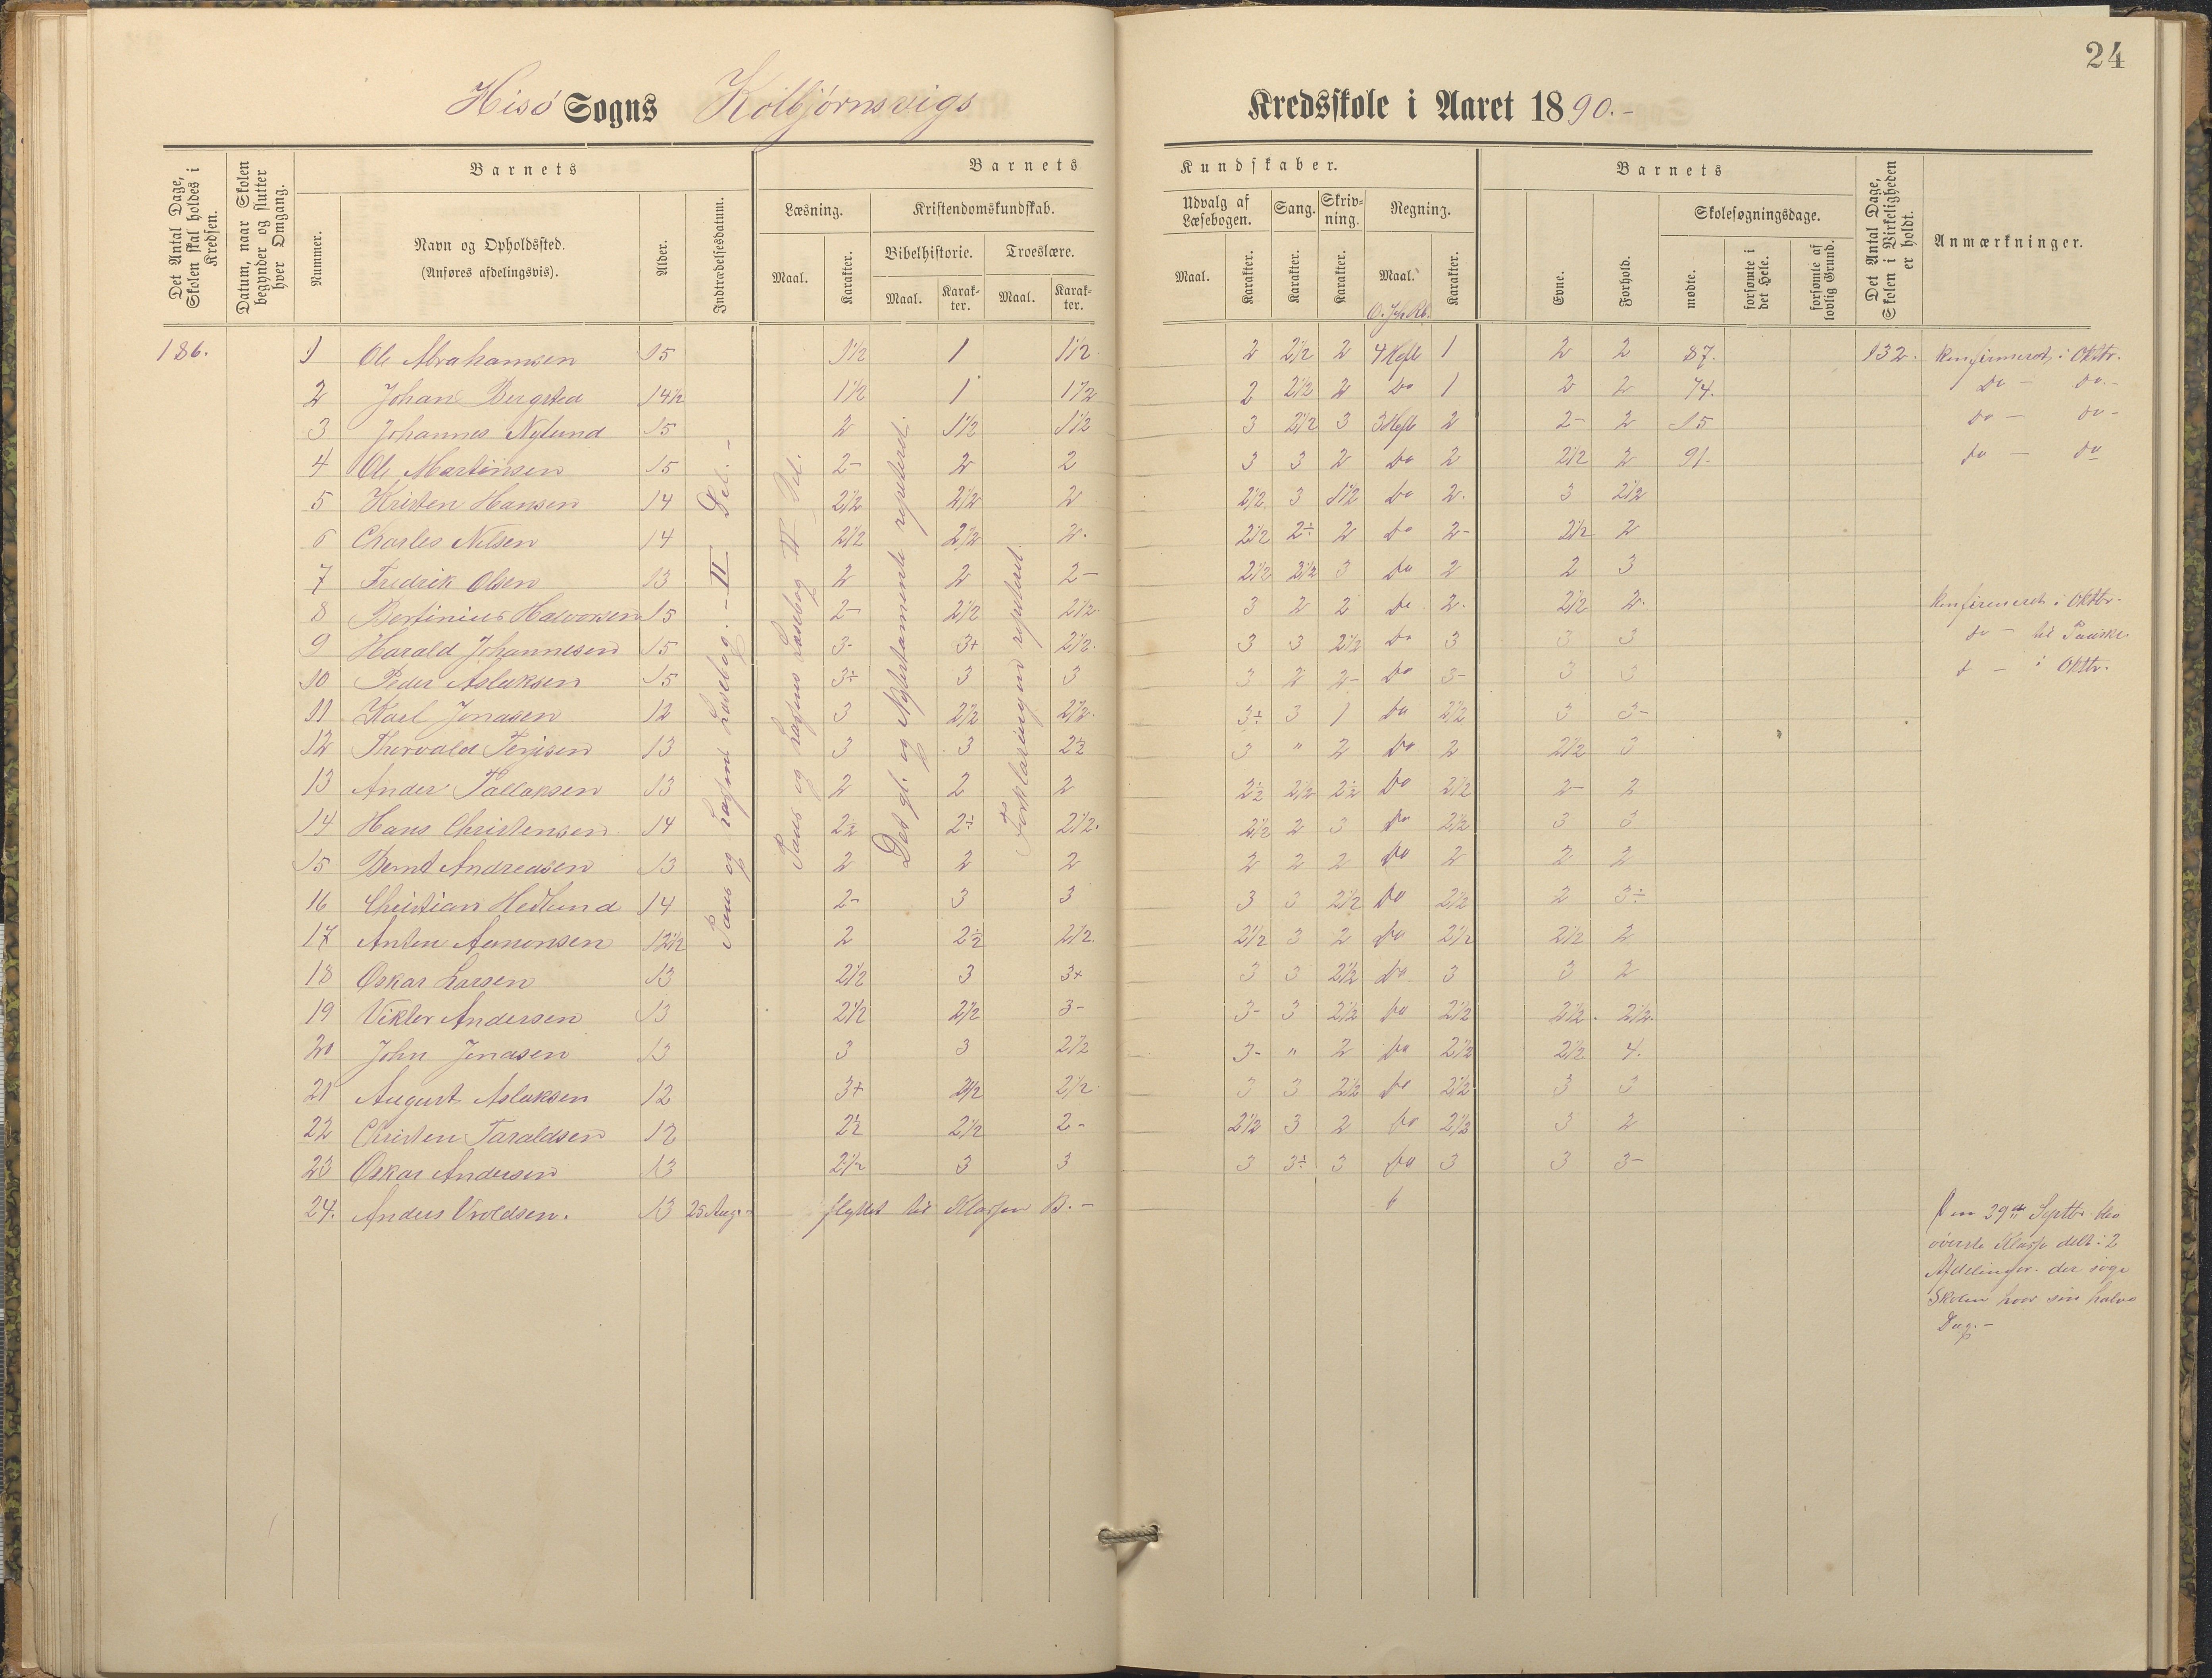 24
Hisö Sogns Kolbjørnsvigs Kredsskole i Aaret 1890.-
Det Antal Dage, Skolen skal holdes i Kredsen.
Datum, naar Skolen begynder og slutter hver Omgang.
Barnets
Nummer.
Navn og Opholdssted.
(Anføres afdelingsvis).
Alder.
Indtrædelsesdatum.
Barnets Kundskaber.
Læsning.
Maal.
Karakter.
Kristendomskundskab.
Bibelhistorie.
Maal.
Karakter.
Troeslære.
Maal.
Karakter.
Udvalg af Læsebogen.
Maal.
Karakter.
Sang.
Karakter.
Skrivning.
Karakter.
Regning.
Maal.
Karakter.
Barnets
Evne.
Forhold.
Skolesøgningsdage.
mødte.
forsømte i det Hele.
forsømte af lovlig Grund.
Det Antal Dage, Skolen i Virkeligheden er holdt.
Anmærkninger.
186.
Paus og Lassens Læsebog. - II Del. -
Paus og Lassens Læsebog II Del.
Det gl. og Nytestamente repeteret.
Forklaringen repeteret.
1 Ole Abrahamsen 15 1½ 1 1½ 2 2½ 2 4 Rgll 1 2 2 87. 132. Konfirmeret i Oktbr.
2 Johan Bergsted 14½ 1½ 1 1½ 2 2½ 2 do 1 2 2 74. do - do.-
3 Johannes Nylund 15 2 1½ 1½ 3 2½ 3 3 Rgll 2 2- 2 15 do - do -
4 Ole Martinsen 15 2- 2 2 3 3 2 do 2 2½ 2 91- do - do
5 Kristen Hansen 14 2½ 2½ 2 2½ 3 1½ do 2. 3 2½
6 Charles Nilsen 14 2½ 2½ 2. 2½ 2÷ 2 do 2- 2½ 2
7 Fredrik Olsen 13 2 2 2- 2½ 2½ 3 do 2 2 3
8 Bertinius Halvorsen 15 2- 2½ 2½ 3 2 2 do 2. 2½ 2. Konfirmeret i Oktbr.
9 Harald Johannesen 15 3- 3+ 2½. 3 3 2½ do 3 3 3 do - til Paaske.
10 Peder Aslaksen 15 3÷ 3 3 3 2 2- do 3- 3 3 d - i Oktbr.
11 Karl Jonasen 12 3 2½ 2½. 3÷ 3 1 do 2½ 3 3-
12 Thorvald Terjesen 13 3 3 2½ 3 " 2 do 2 2½ 3
13 Ander Tallaksen 13 2 2 2 2½ 2½ 2½ do 2½ 2- 2
14 Hans Christensen 14 2½ 2÷ 2½. 2½ 2 3 do 2½ 3 3
15 Bernt Andreasen 13 2 2 2 2 2 2 do 2 2 2
16 Christian Hedlund 14 2- 3 3 3 3 2½ do 2½ 2 3÷
17 Anton Aanonsen 12½ 2 2½ 2½. 2½ 3 2 do 2½ 2½ 2
18 Oskar Larsen 13 2½ 3 3+ 3 3 2½ do 3 3 2
19 Viktor Andersen 13 2½ 2½ 3- 3- 3 2½ do 2½ 2½. 2½.
20 John Jonasen 13 3 3 2½ 3- " 2 do 2½ 2½ 4.
21 August Aslaksen 12 3+ 2½ 2½. 3 3 2½ do 2½ 3 3
22 Christen Taraldsen 12 2½ 2½ 2- 2½ 3 2 do 2½ 3 2
23 Oskar Andersen 13 2½ 3 3 3 3÷ 3 do 3 3 3-
24. Anders Uroldsen. 13 25 Aug.- flyttet til Klassen B.-
Den 29de Septbr. blev
øverste Klasse delt i 2
Afdelinger. der søge
Skolen hver sin halve
Dag.-